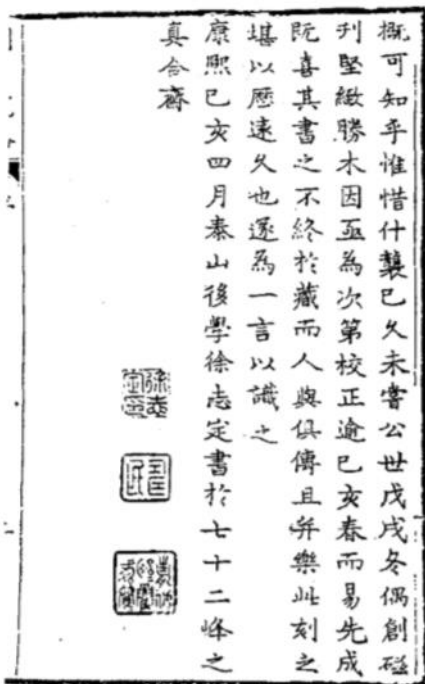 概可知乎惟惜什襲已久未嘗公世戊戌冬偶創磁
刊堅緻勝木因亟為次第校正逾己亥春而易先成
既喜其書之不終於藏而人與俱傳且并樂此刻之
堪以歷遠久也遂為一言以識之
康熙己亥四月泰山後學徐志定書於七十二峰之
真合齋
徐志定印